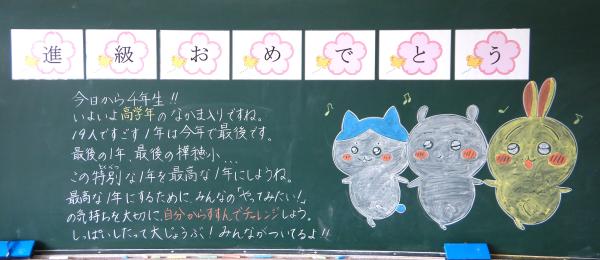 進級おめでとう
今日から5年生!!
いよいよ高学年のなかま入りですね。
19人ですごす1年は今年で最後です。
最後の1年、最後の樺穂小…
この特別な1年を最高な1年にしようね。
最高な1年にするために、みんなの「やってみたい!」
の気持ちを大切に、自分からすすんでチャレンジしよう。
しっぱいしたって大じょうぶ!みんながついてるよ!!